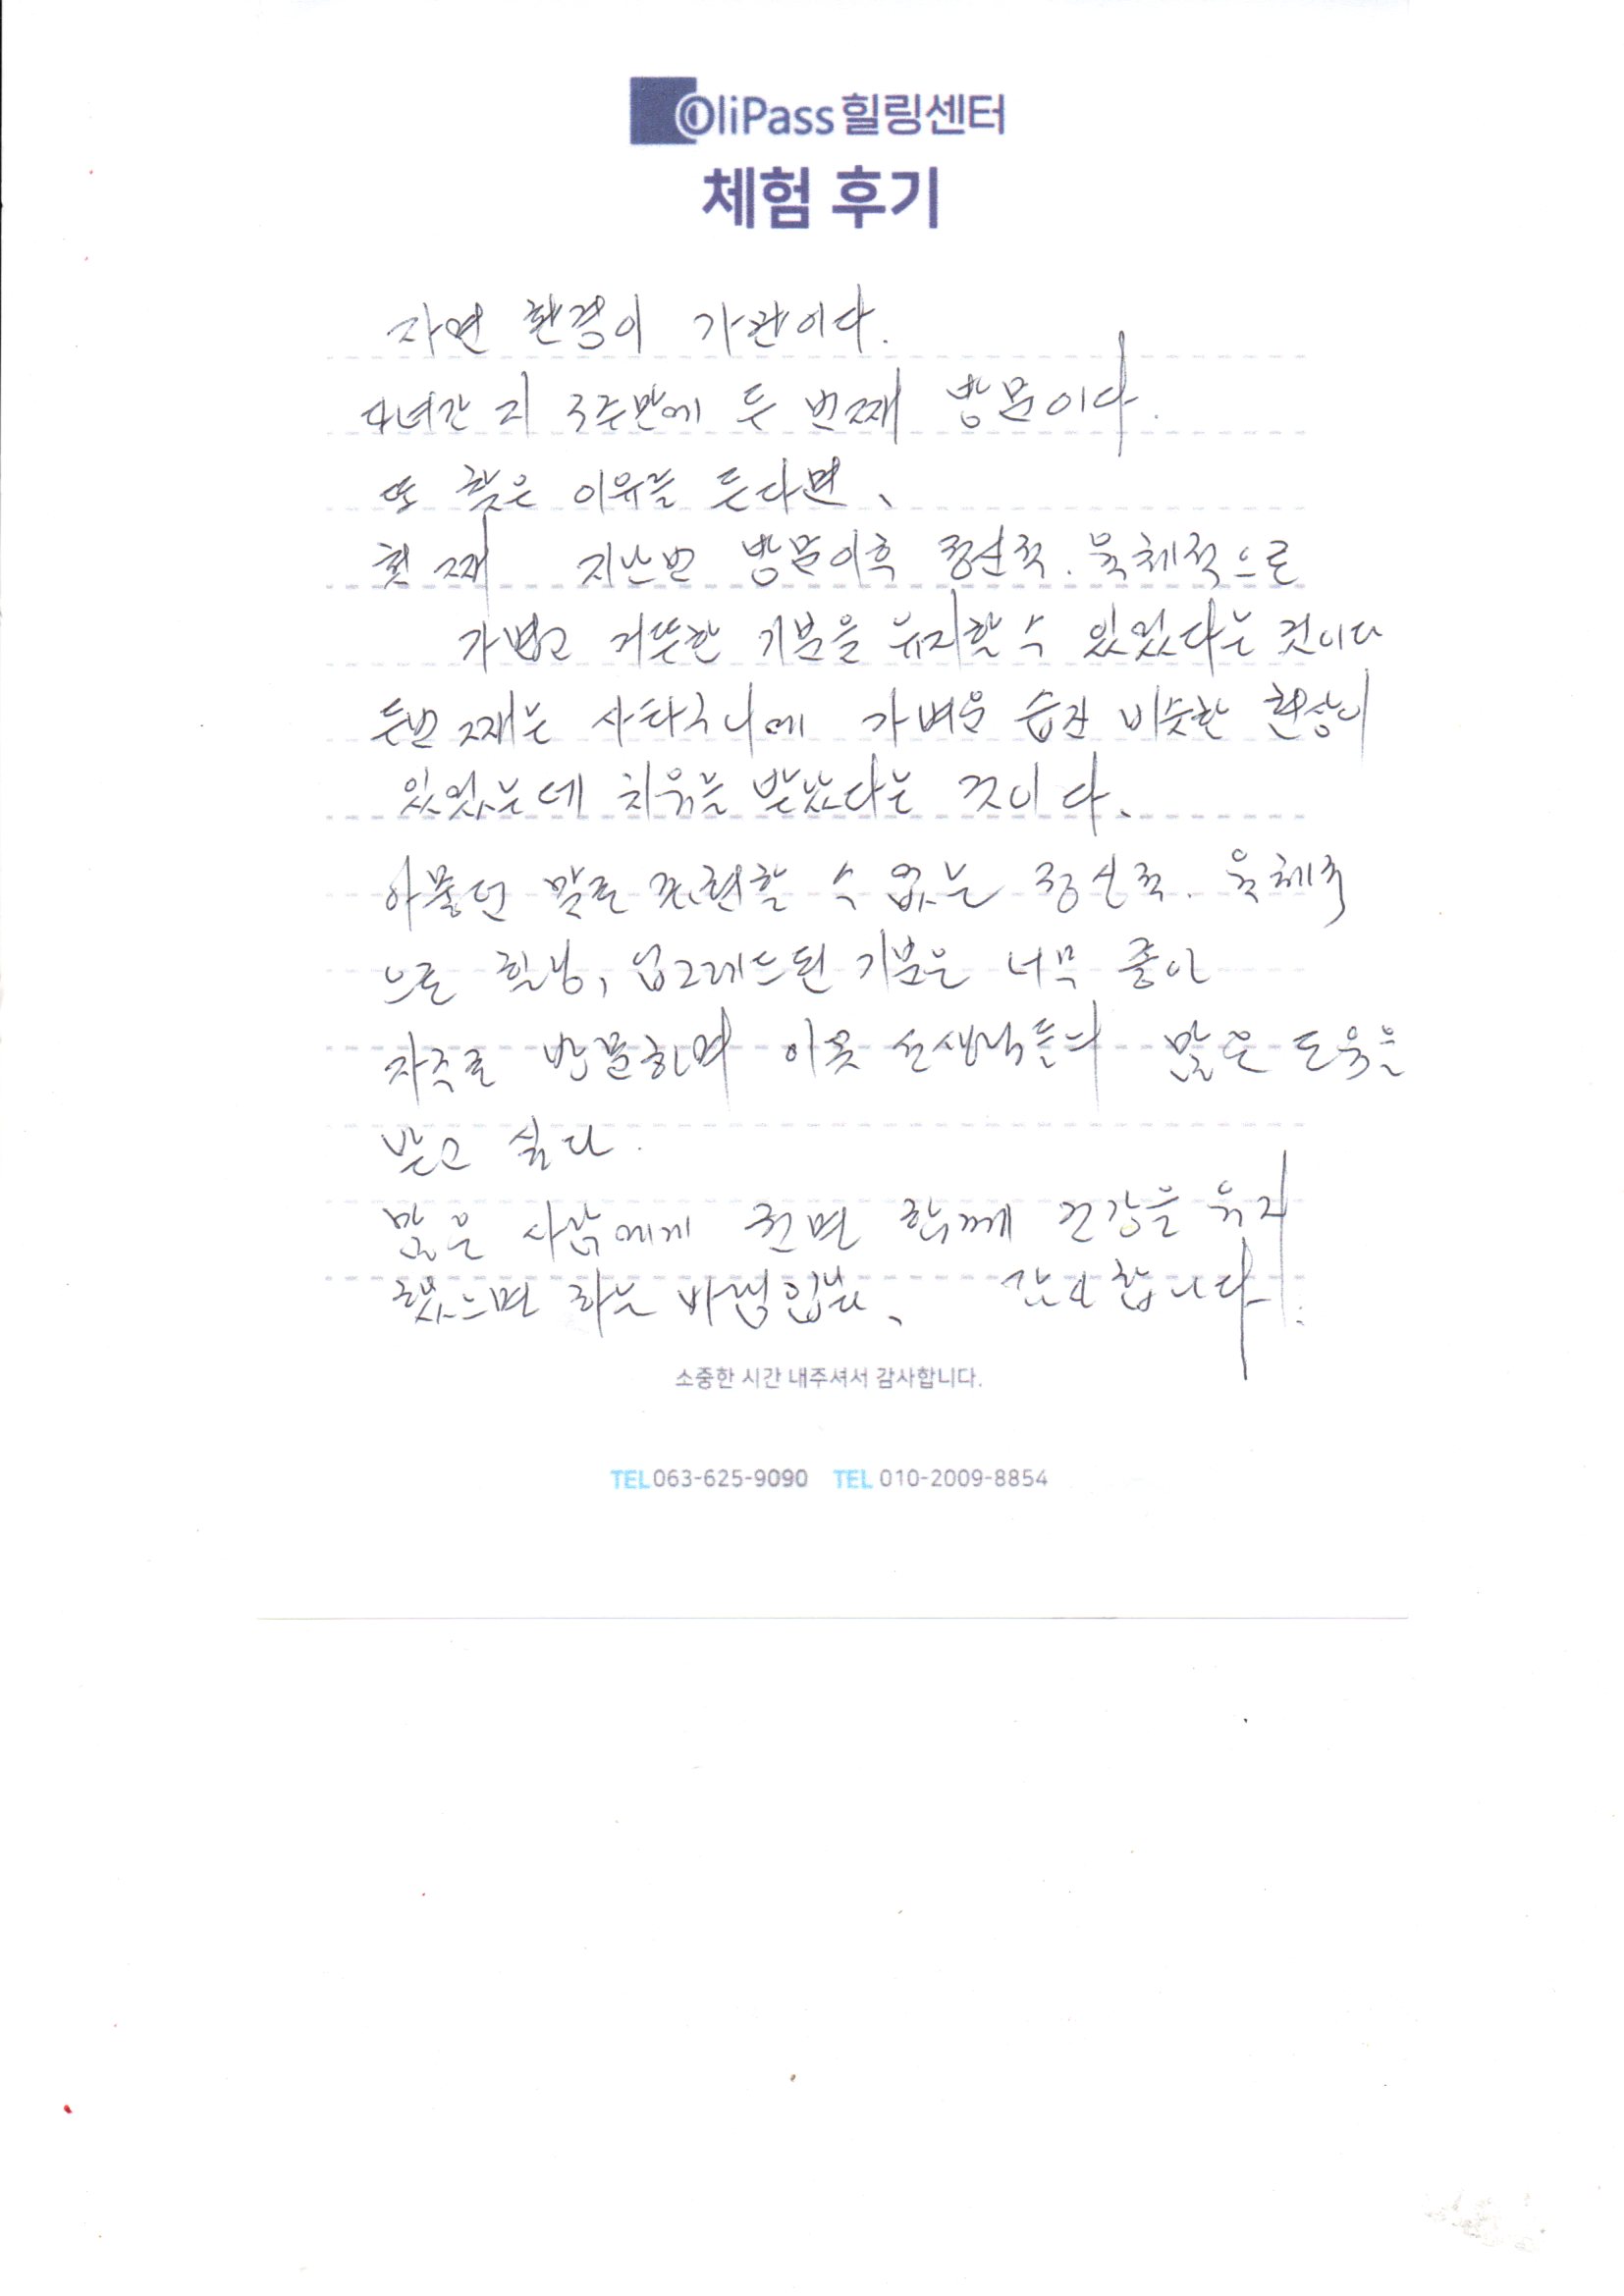 OliPass 힐링센터
체험 후기
자연 환경이 가관이다.
3주만에 두 번째 방문이다.
또 찾은 이유를 든다면、
첫 째 지난번 방문이후 정신적. 육체적으로
가볍고 거뜬한 기분을 유지할 수 있었다는 것이다
두번 째는 사타구니에 가벼운 습진 비슷한 현상이
있었는데 치유를 받았다는 것이다.
아뭏던 말로 표현할 수 없는 정신적. 육체적
으로 힐닝, 업그레드된 기분은 너무 좋아
자주로 방문하며 이웃 선생님들의 많은 도움을
받고 싶다.
많은 사람에게 권면 함께 건강을 유지
했으면 하는 바램입니다、 감사합니다.
소중한 시간 내주셔서 감사합니다.
TEL 063-625-9090 TEL 010-2009-8854